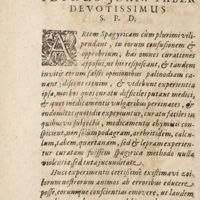 DEVOTISSIMUS
S. P. D.
ARtem Spagyricam cùm plurimi vili-
pendant, in eorum confusionem &
opprobrium, has omnes curationes
apposui, ut hi resipiscant, & tandem
inviti etiam falsis opinionibus palinodiam ca-
nant; discent etenim, & videbunt experientia
ipsa, morbos quos curatu difficiles putant medici,
& quot medicamentis vulgaribus pertinaces, &
endemitos quotidie experiuntur, curatu faciles in
quibusvis subjectis, medicamentis chymicis con-
sistere, etenim podagram, arthritidem, calcu-
lum, quartanam, sed & lepram experien-
tur curatam fuisse Spagyrica methodo nulla
violentia, sed tuta jucunditate.
Hæc experimenti certissimè existimavi va-
nostrorum animos ab erroribus educere
posse, eorumque conscientias convovere, ut laudem